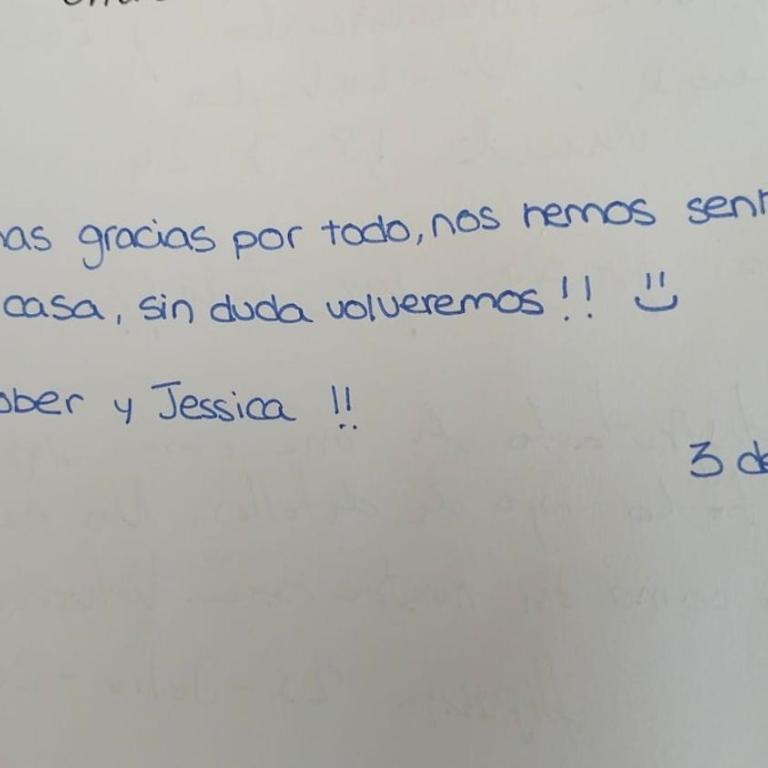 as gracias por todo, nos hemos sent
casa, sin duda volveremos!! :)
ober y Jessica !!
3 de